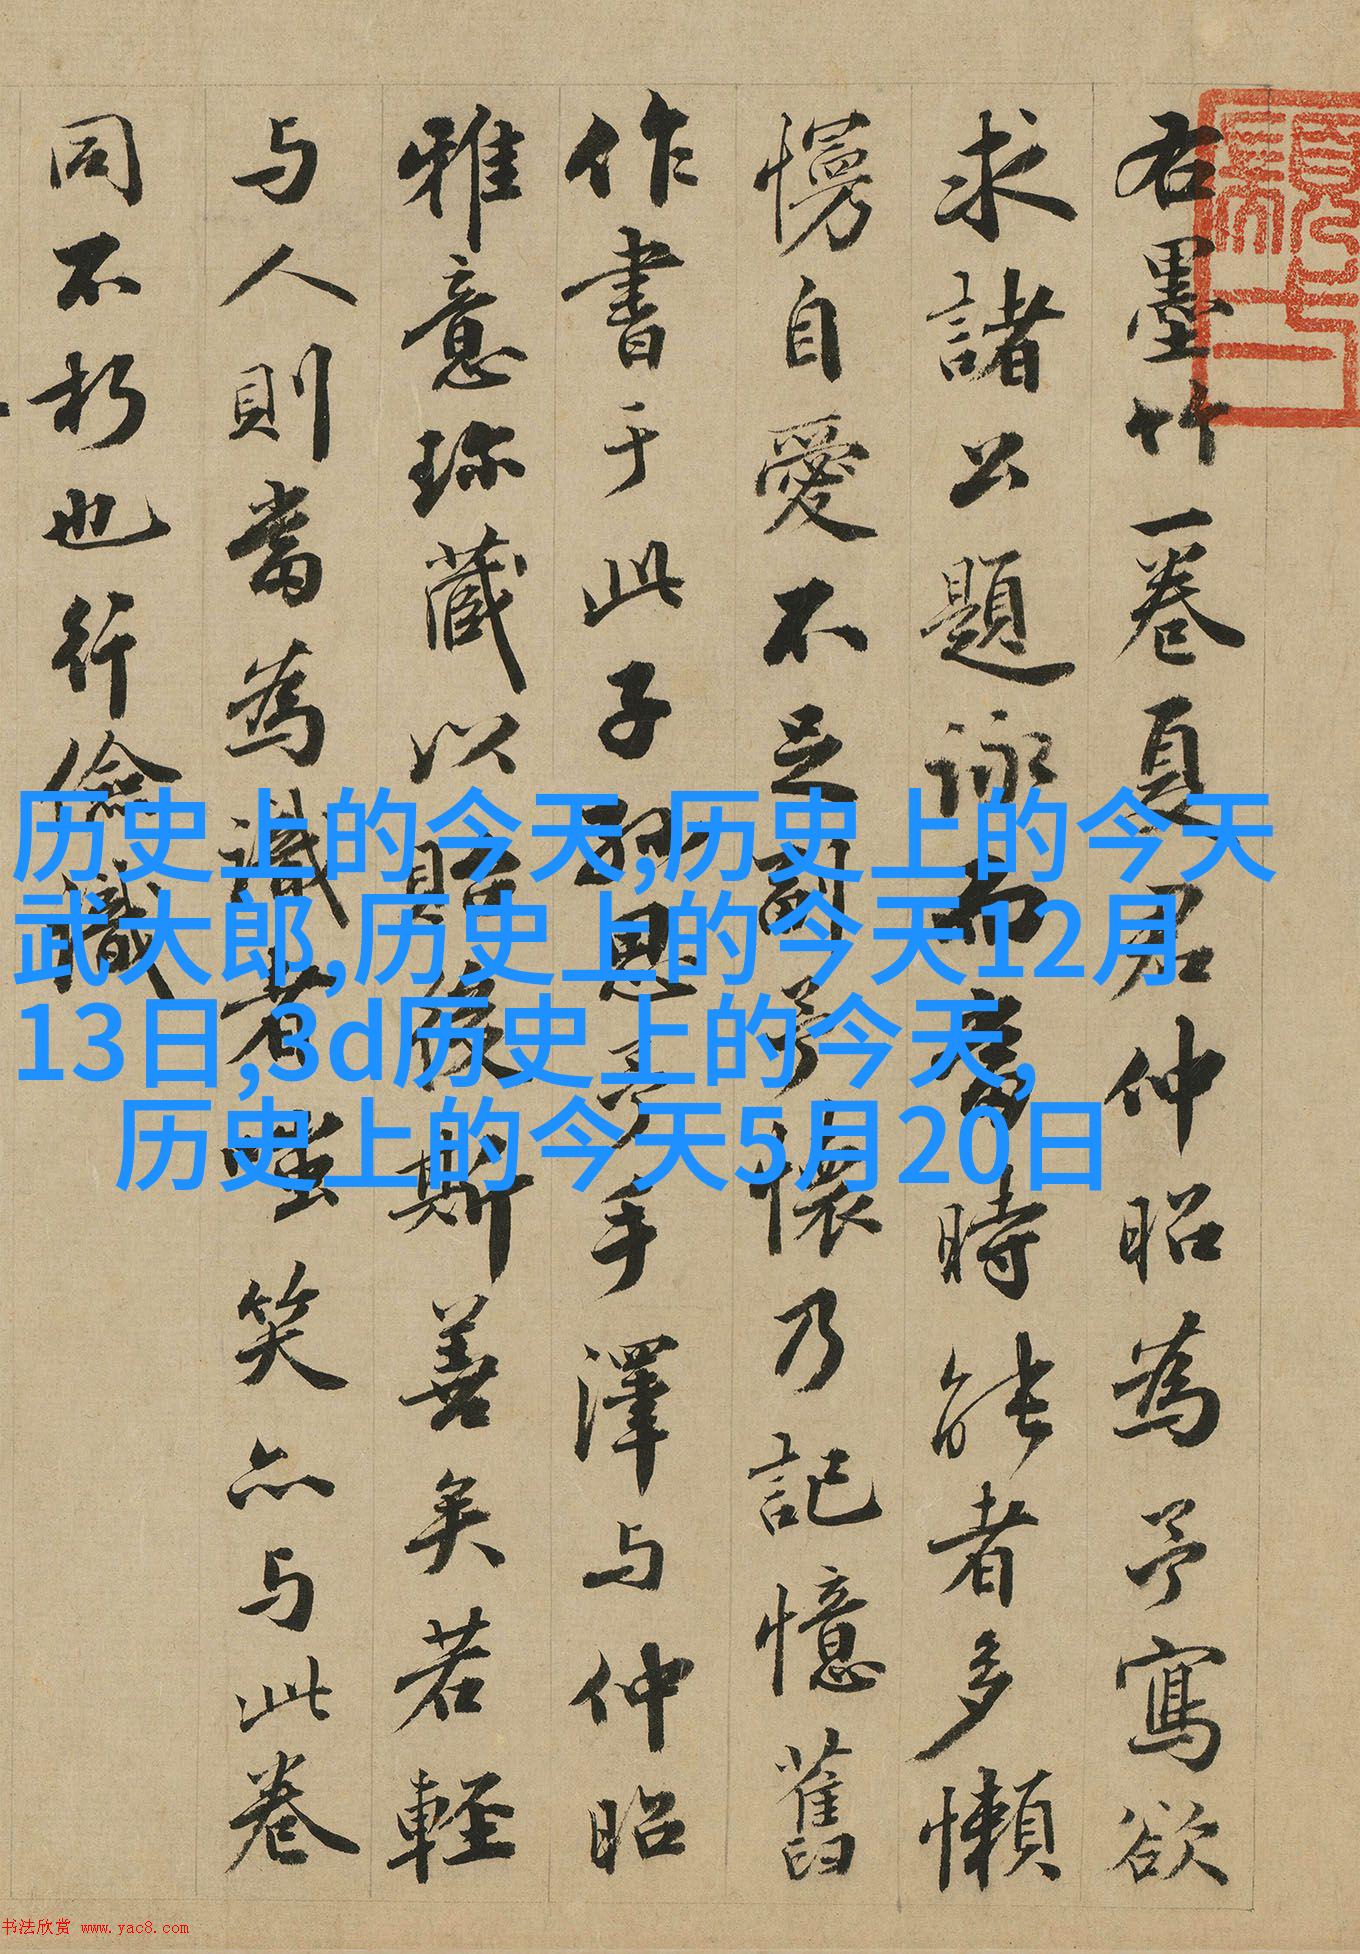 右墨竹一卷夏君仲昭為予寫欲
求諸公題詠而當時能者多懶
慢自愛不足副予懷乃記憶舊
作書于此子孫思予手澤与仲昭
雅意珎藏以貽後斯善矣若輕
与人則當為識者嗤笑亦与此卷
同不朽也行儉識
历史上的今天,历史上的今天
武大郎,历史上的今天12月
13日,3d历史上的今天,
历史上的今天5月20日
书法欣赏 www.yac8.com